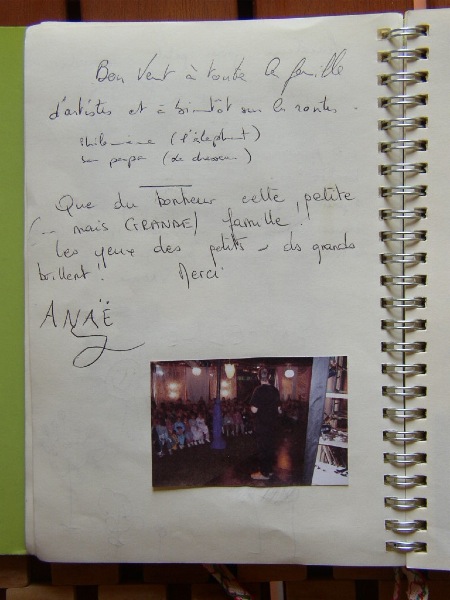 Bon Vent à toute la famille
d'artistes et à bientôt sur les routes.
Philomène (l'éléphant)
Son papa (le dresseur)
Que du bonheur cette petite
(... mais GRANDE) famille !
Les yeux des petits et des grands
brillent ! Merci
ANAË